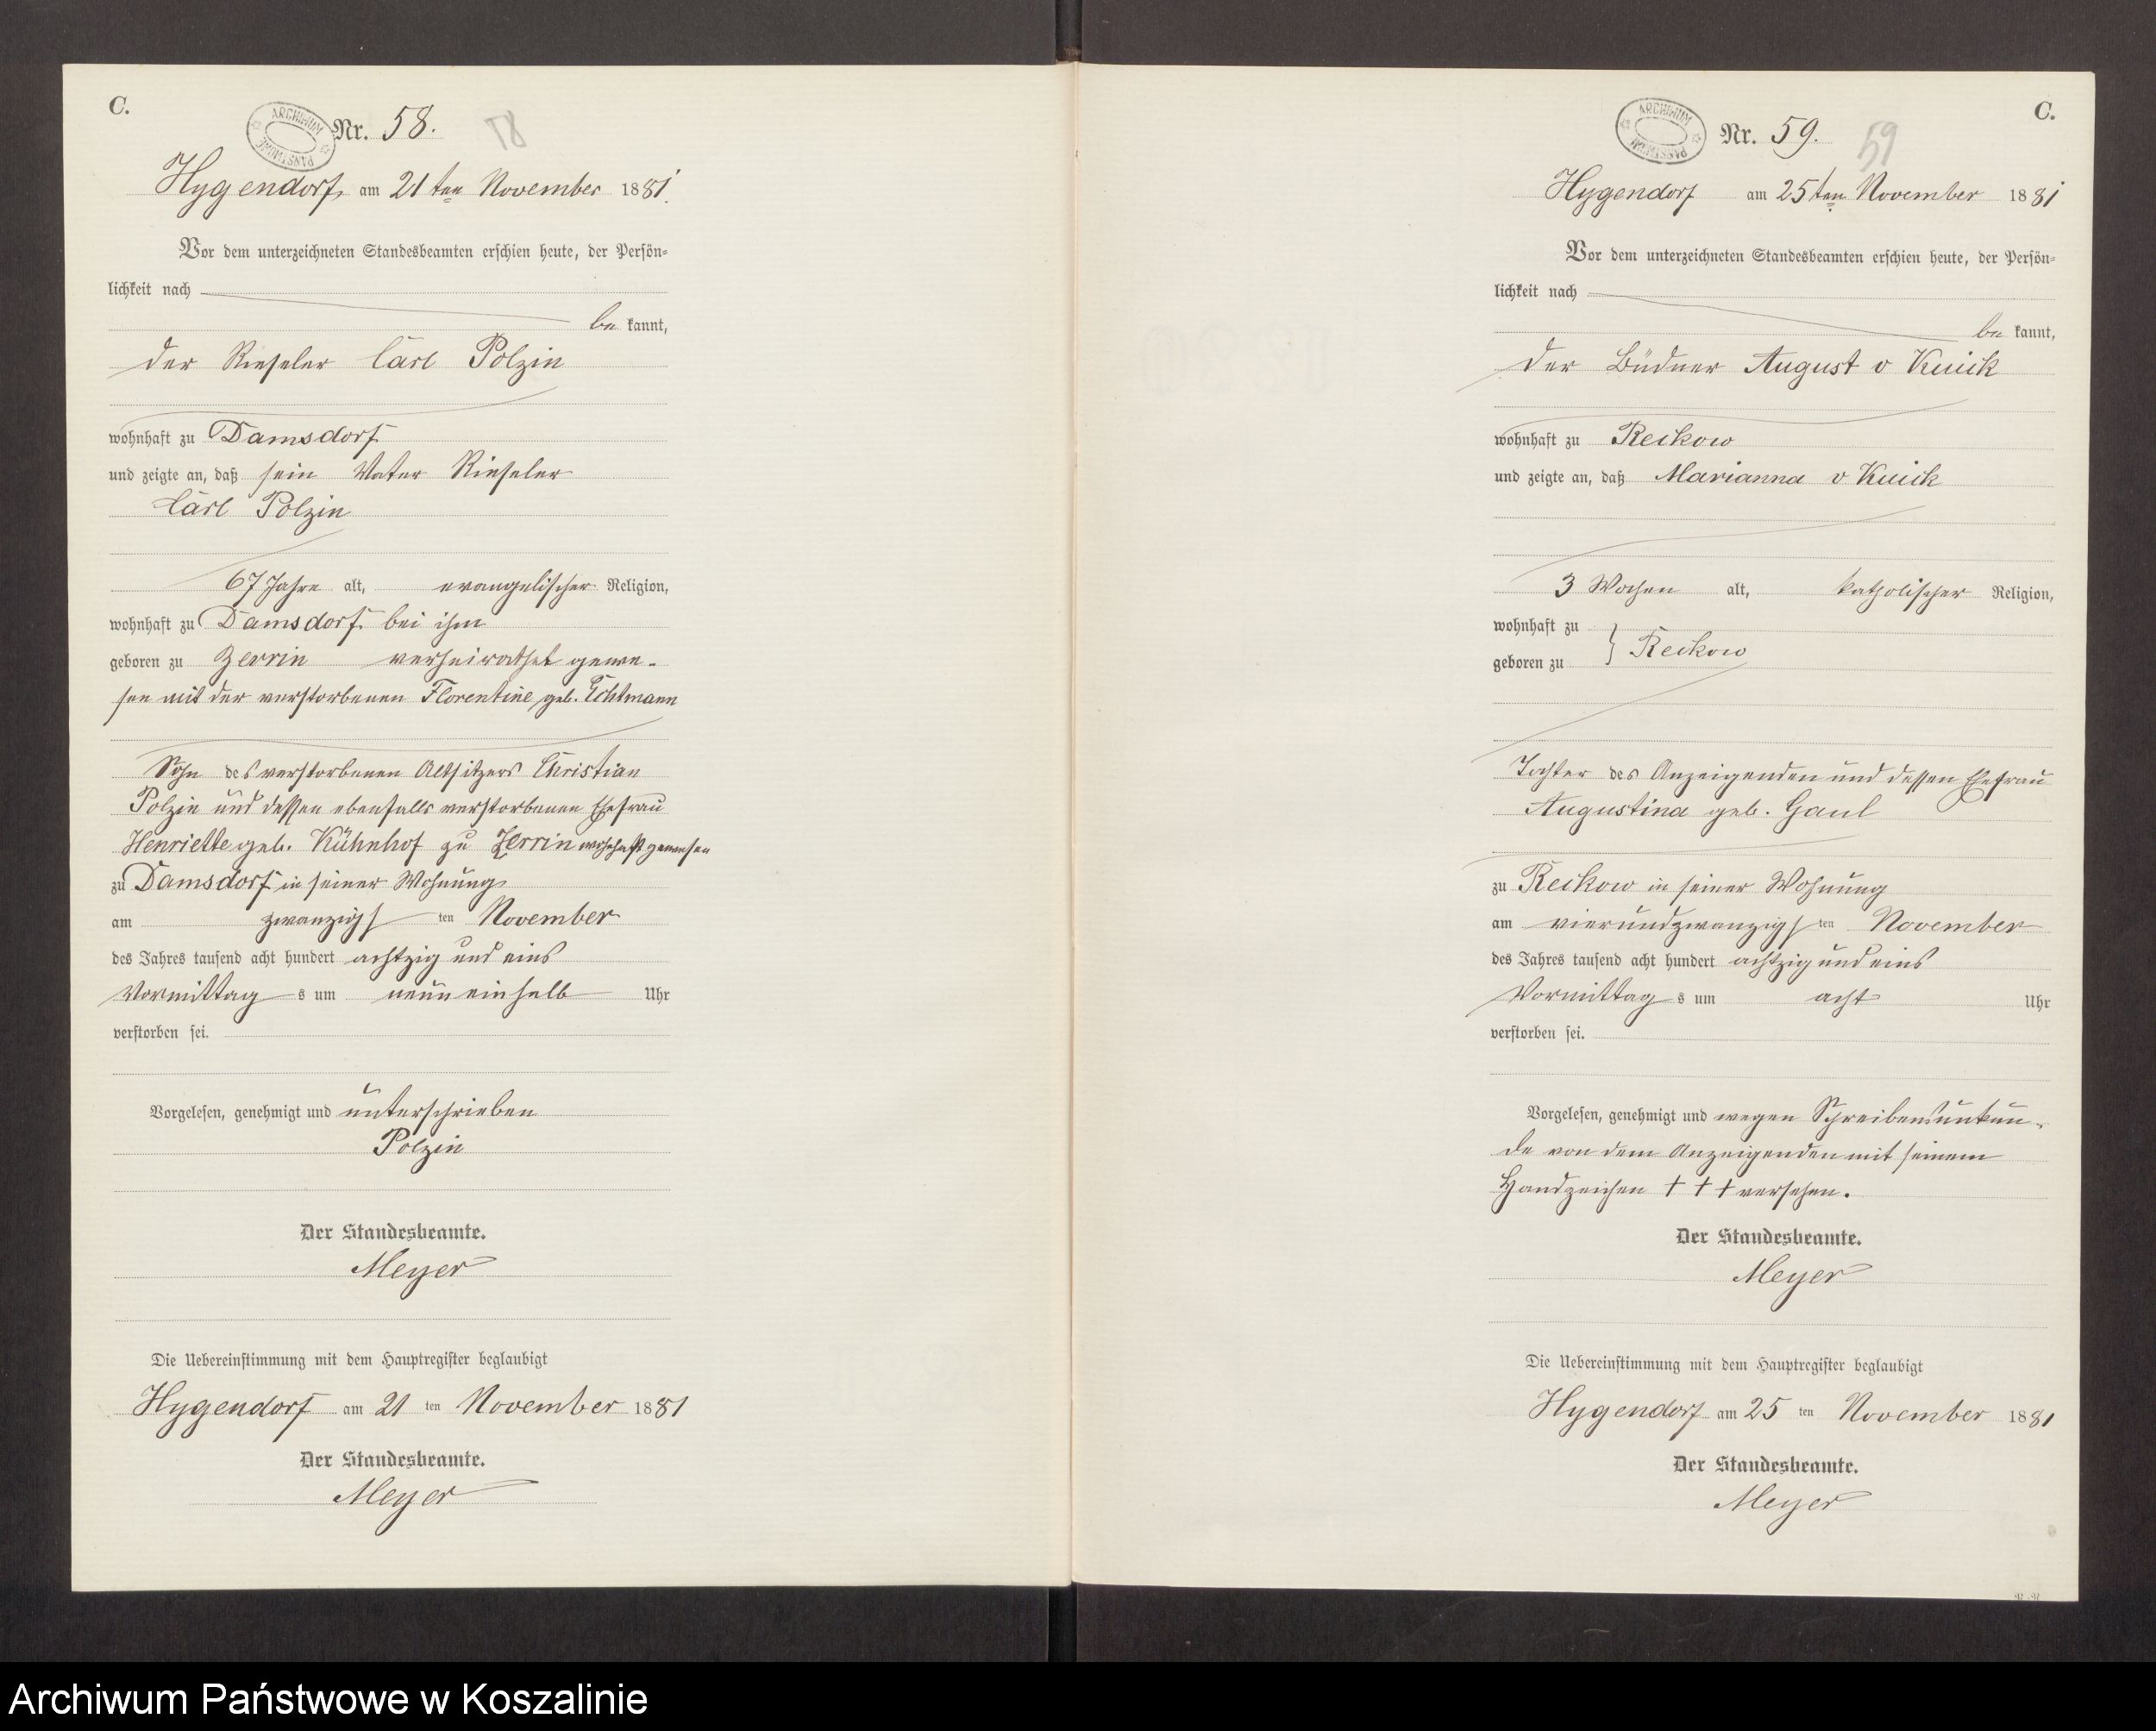 C.
ARCHIWUM PAŃSTWOWE
Nr. 58.
58
Hygendorf am 21ten November 1881.
Vor dem unterzeichneten Standesbeamten erschien heute, der Persön-
lichkeit nach
be kannt,
der Rieseler Carl Polzin
wohnhaft zu Damsdorf
und zeigte an, daß sein Vater Rieseler
Carl Polzin
67 Jahre alt, evangelischer Religion,
wohnhaft zu Damsdorf bei ihm
geboren zu Zerrin verheirathet gewe-
sen mit der verstorbenen Florentine geb. Echtmann
Sohn des verstorbenen Altsitzers Christian
Polzin und dessen ebenfalls verstorbenen Ehefrau
Henriette geb. Kühnhof zu Zerrin wohnhaft gewesen
zu Damsdorf in seiner Wohnung
am zwanzigs ten November
des Jahres tausend acht hundert achtzig und eins
Vormittag s um neun einhalb Uhr
verstorben sei.
Vorgelesen, genehmigt und unterschrieben
Polzin
Der Standesbeamte.
Meyer
Die Uebereinstimmung mit dem Hauptregister beglaubigt
Hygendorf am 21 ten November 1881
Der Standesbeamte.
Meyer
C.
ARCHIWUM PAŃSTWOWE
Nr. 59.
59
Hygendorf am 25ten November 1881
Vor dem unterzeichneten Standesbeamten erschien heute, der Persön-
lichkeit nach
be kannt,
der Büdner August v Kuick
wohnhaft zu Reckow
und zeigte an, daß Marianna v Kuick
3 Wochen alt, katholischer Religion,
wohnhaft zu
geboren zu } Reckow
Tochter des Anzeigenden und dessen Ehefrau
Augustina geb. Gaul
zu Reckow in seiner Wohnung
am vierundzwanzigs ten November
des Jahres tausend acht hundert achtzig und eins
Vormittag s um acht Uhr
verstorben sei.
Vorgelesen, genehmigt und wegen Schreibensunkun-
de von dem Anzeigenden mit seinem
Handzeichen + + + versehen.
Der Standesbeamte.
Meyer
Die Uebereinstimmung mit dem Hauptregister beglaubigt
Hygendorf am 25 ten November 1881
Der Standesbeamte.
Meyer
Archiwum Państwowe w Koszalinie